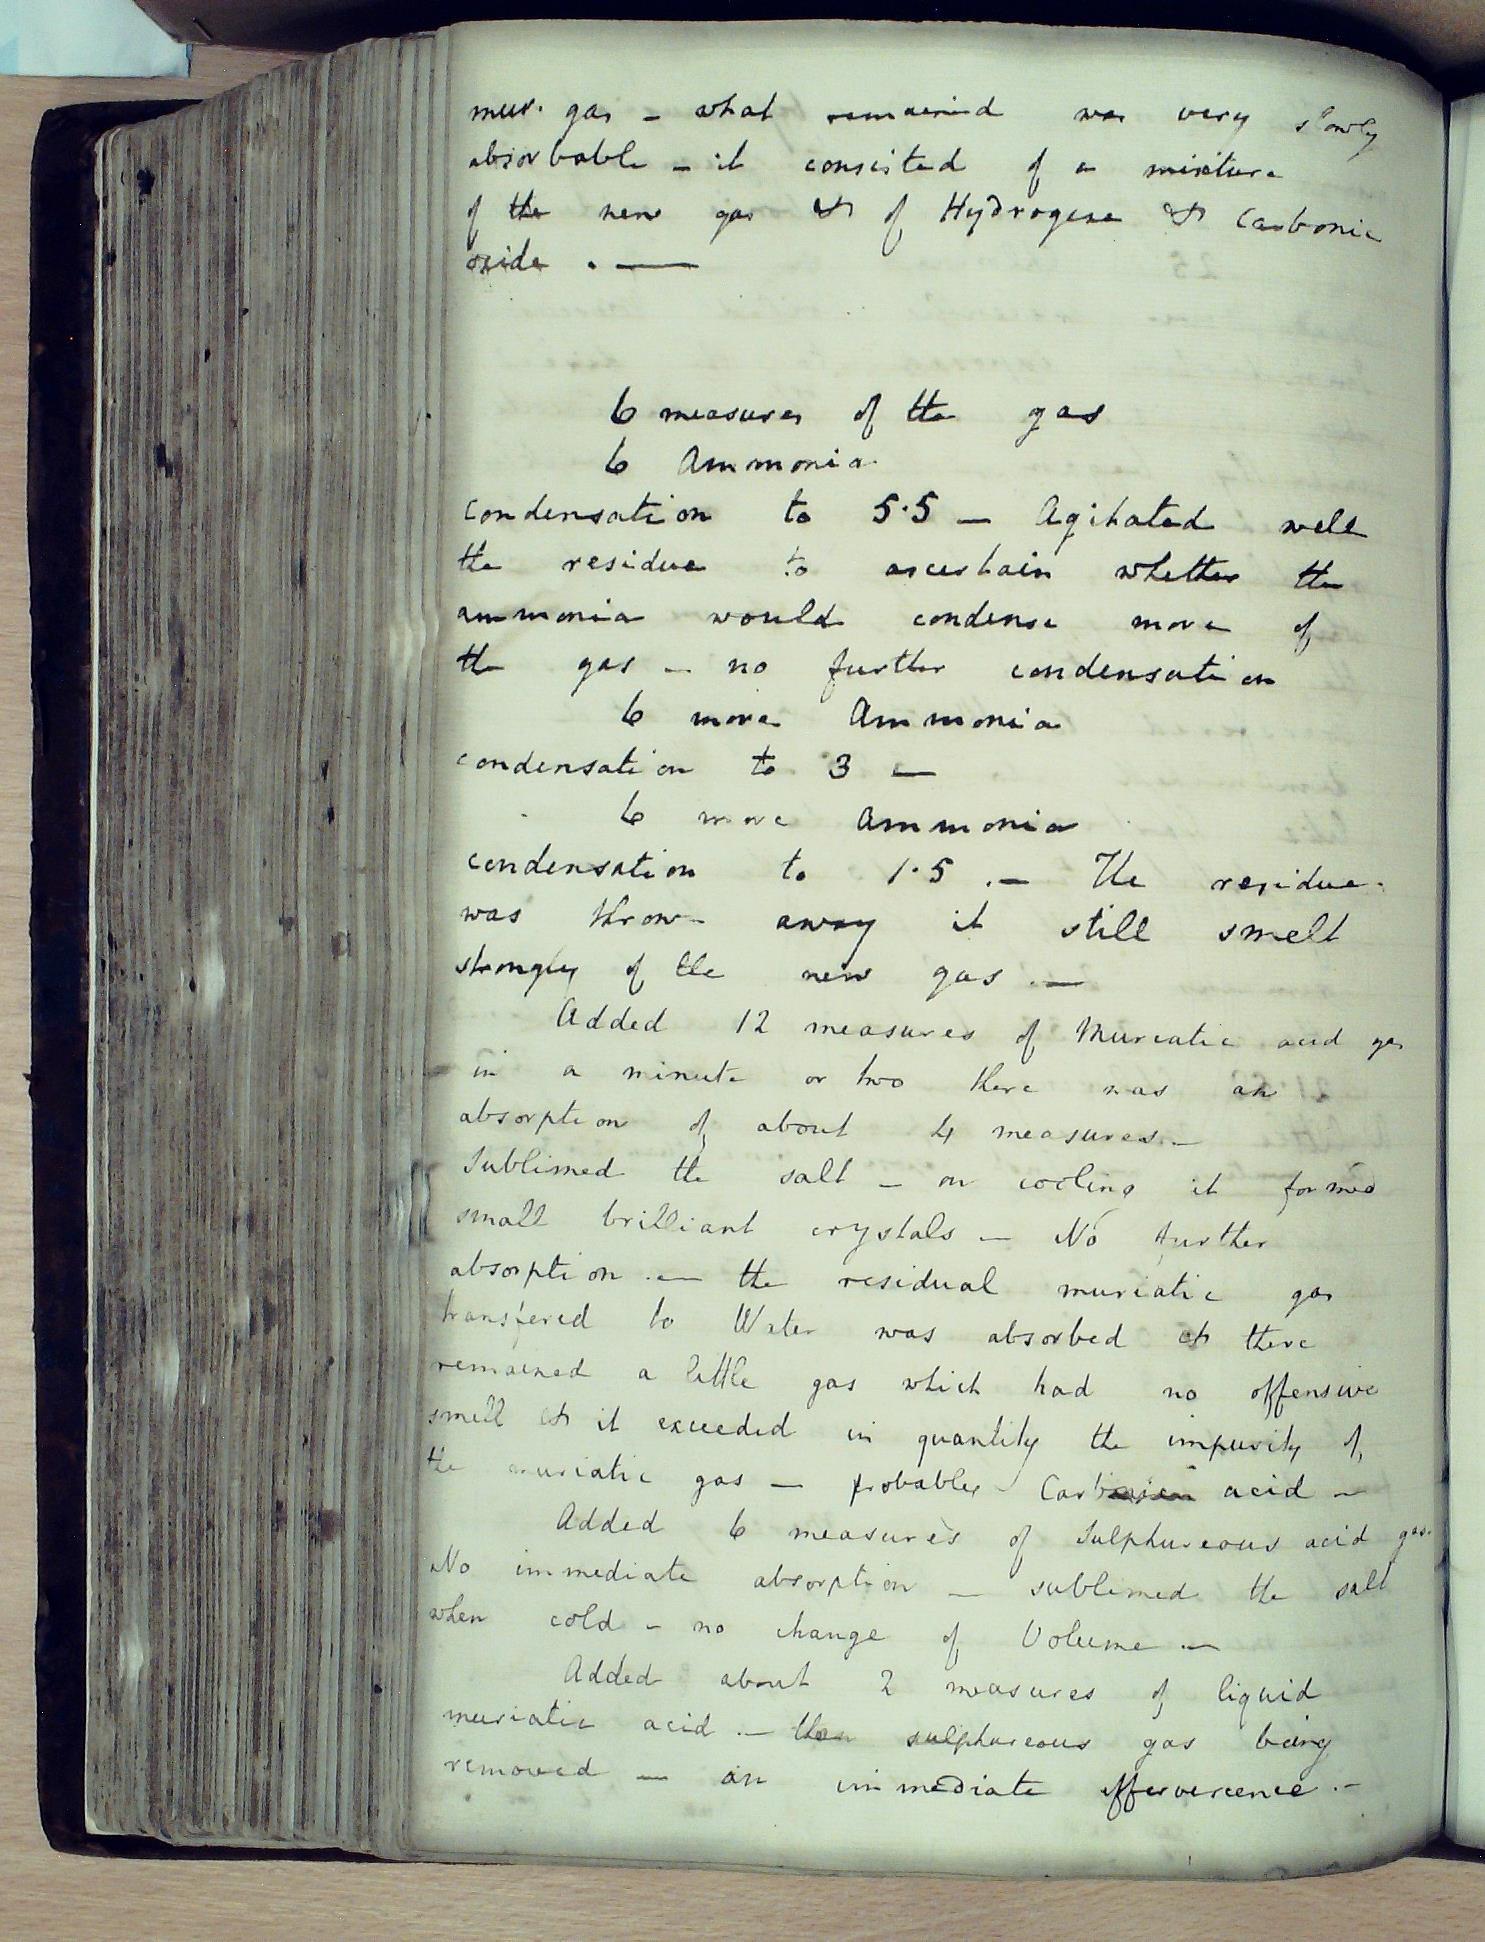 mur. gas - what remained was very slowly
absorbable - it consisted of a mixture
of the new gas & of Hydrogene & Carbonic
oxide . —
6 measures of the gas
6 Ammonia
condensation to 5.5 — Agitated well
the residue to ascertain whether the
ammonia would condense more of
the gas - no further condensation
6 more Ammonia
condensation to 3 —
6 more Ammonia
condensation to 1.5 .— The residue
was thrown away it still smelt
strongly of the new gas .—
Added 12 measures of Muriatic acid gas
in a minute or two there was an
absorption of about 4 measures.—
Sublimed the salt — on cooling it formed
small brilliant crystals — No further
absorption .— the residual muriatic gas
transfered to Water was absorbed & there
remained a little gas which had no offensive
smell & it exceeded in quantity the impurity of
the muriatic gas — probably acid —
Added 6 measures of Sulphureous acid gas.
No immediate absorption — sublimed the salt
when cold - no change of Volume .—
Added about 2 measures of liquid
muriatic acid .— the sulphureous gas being
removed — an immediate effervescence .—